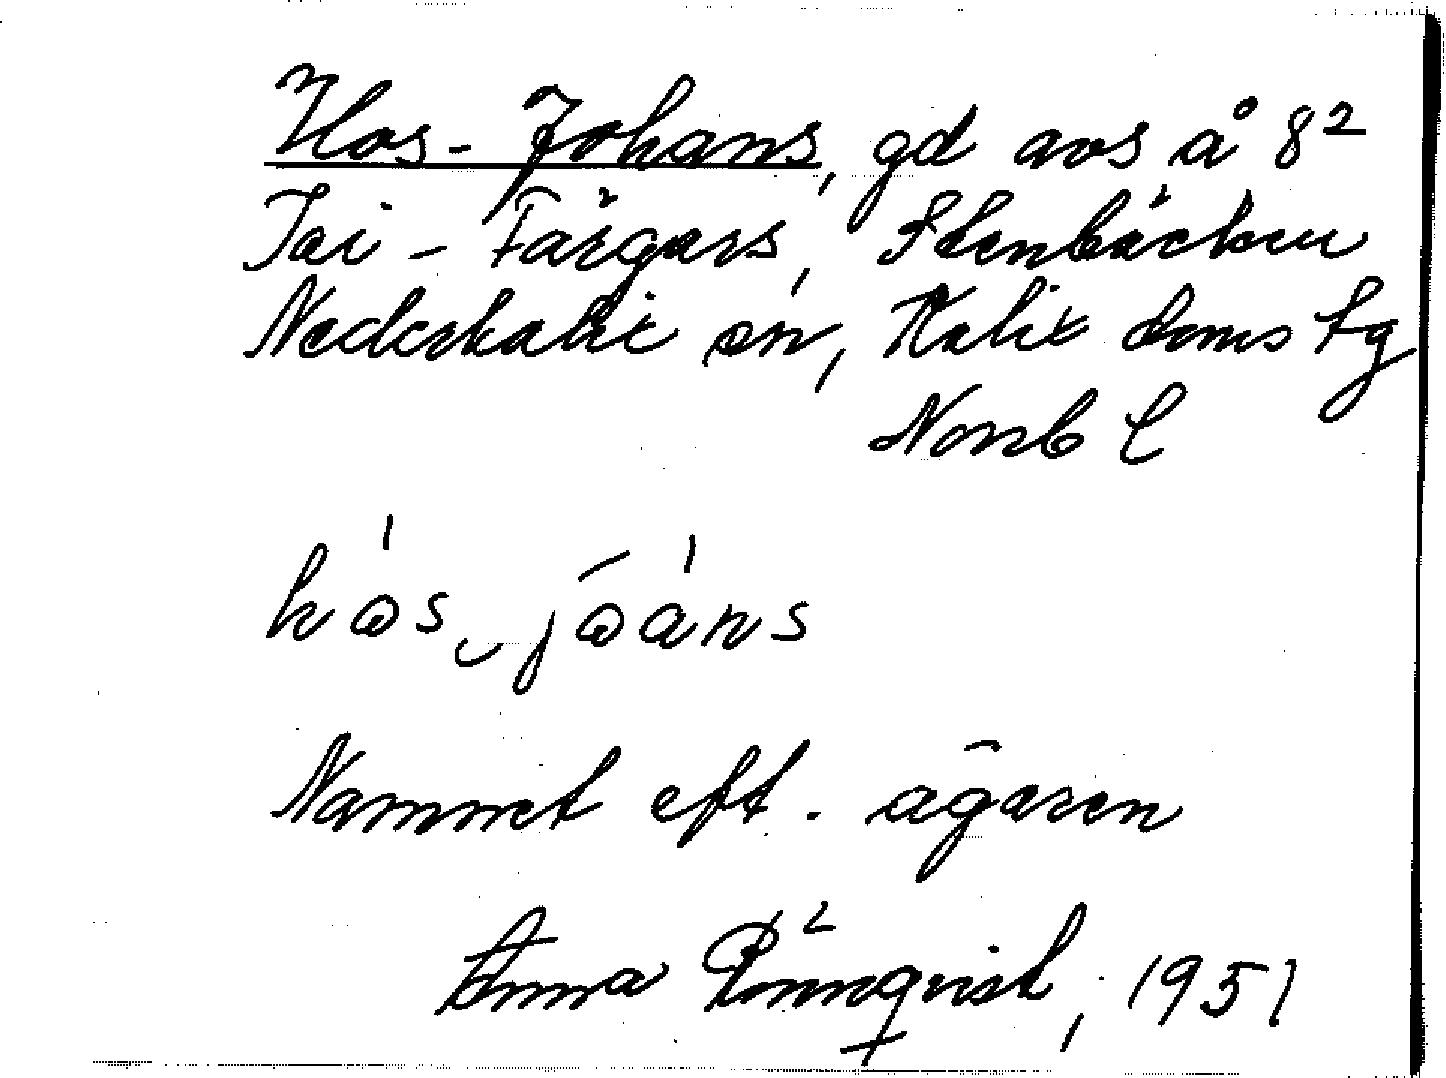 Hos-Johans, gd avs å 8²
Jai-Färgars, Stenbäcken
Nederkalix sn, Kalix doms fg
Norrb l
hås jåans
Namnet eft. ägaren
Anna Rönnqvist, 1951